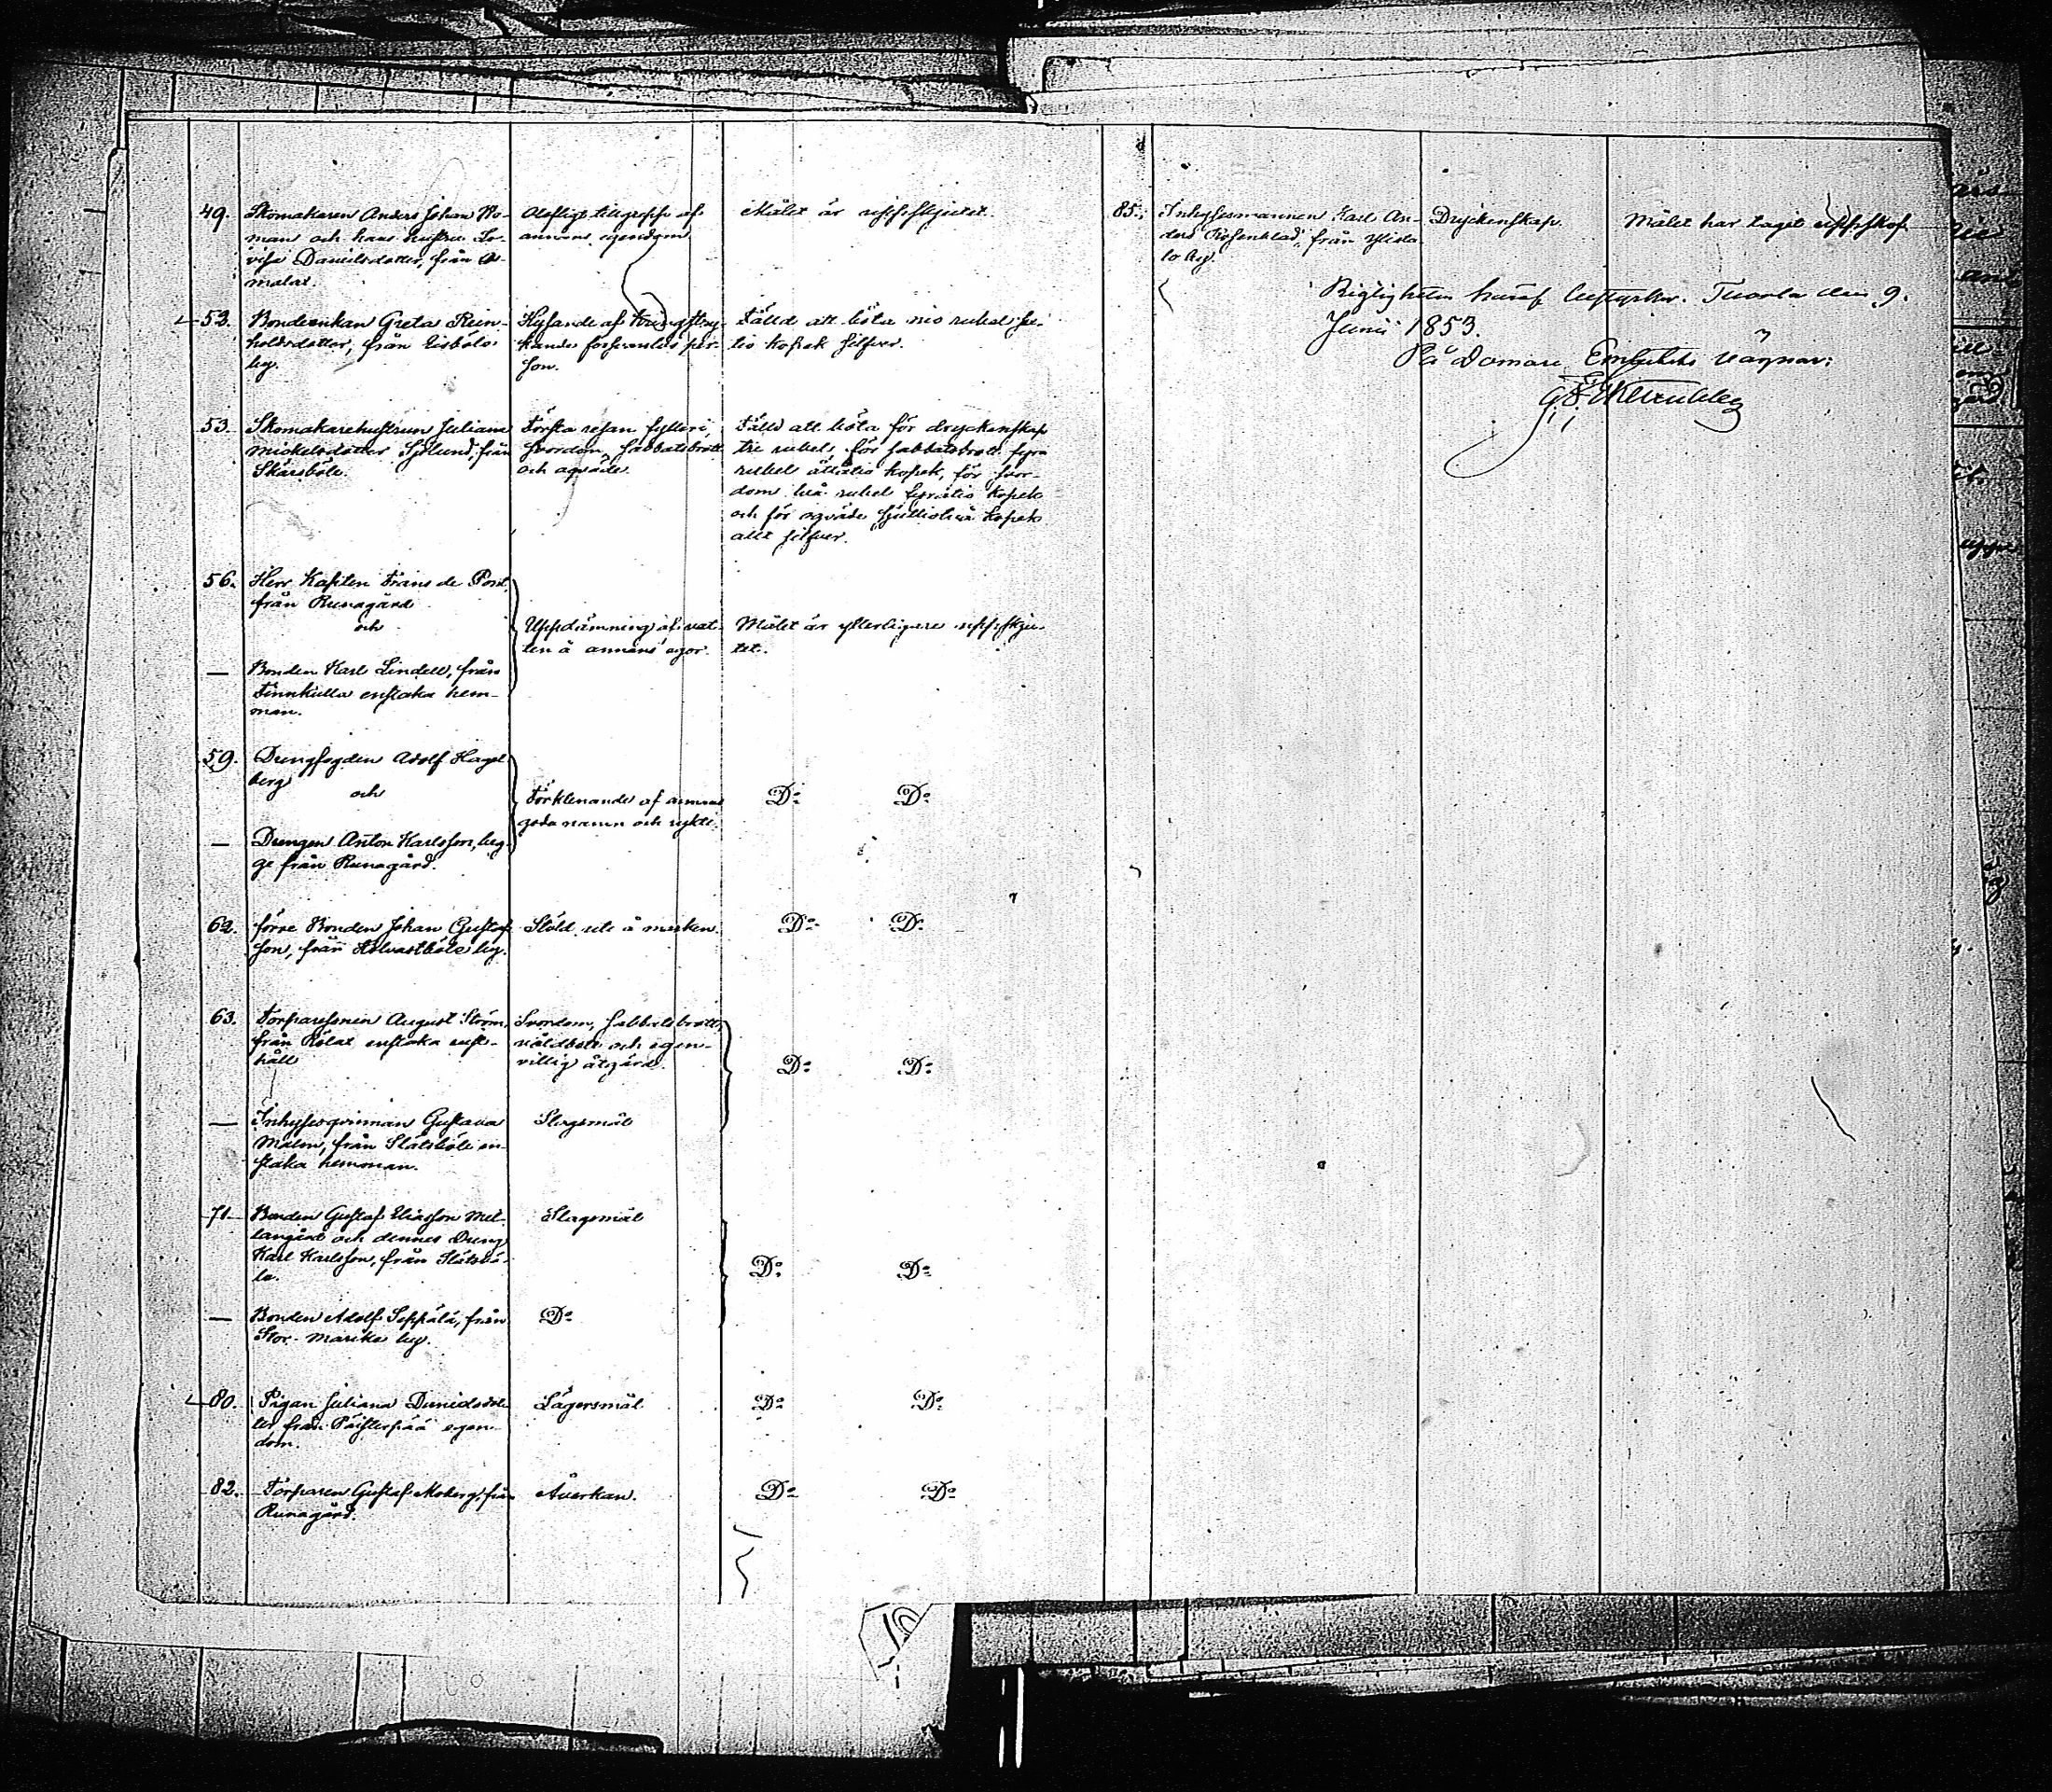 49. Skomakaren Anders Johan Ro-
man och hans hustru Lo-
visa Danielsdotter, från
malax.
Olofligt tillgrepp af
annans egendom
Målet är uppskjutet.
52. Bondeenkan Greta Rein-
holdsdotter, från Eisböle
by.
Hysande af
person.
Fälld att böta nio rubel
tio kopek silfver.
53. Skomakarehustrun Juliana
Mickelsdotter Sjölund, från
Skärsböle.
Första resan fylleri,
svordom, sabbatsbrott
och oqväde.
Fälld att böta för dryckenskap
tre rubel, för sabbatsbrott fyra
rubel åttatio kopek, för svor-
dom två rubel fyratio kopek
och för oqväde sjuttiotvå kopek
allt silfver.
56. Herr Kapiten Frans de Pont,
från Runagård
och
— Bonden Karl Lindell, från
Finnkulla enstaka hem-
man.
Uppdämning af vat-
ten å annans egor.
Målet är ytterligare uppskju-
tet.
59. Drengfogden Adolf Hagel
berg
och
— Drengen Anton Karlsson, beg-
ge från Runagård.
Förklenande af annans
goda namn och rykte.
Do Do
62. förre Bonden Johan Gustaf
son, från by.
Stöld ute å marken.
Do Do
63. Torparesonen August Ström,
från Rölax enstaka
håll
Svordom, sabbatsbrott,
våldbete och egen-
villig åtgärd.
Do Do
— Inhysesqvinnan Gustava
Malm, från Slätsböle en-
staka hemman.
Slagsmål
71. Bonden Gustaf Eliasson Mel-
langård och dennes Dreng
Karl Karlsson, från Slätsbö-
le.
Slagsmål
Do Do
— Bonden Adolf Seppälä, från
Stor-Marike by.
Do
80. Pigan Juliana Danielsdot-
ter från Päisterpää egen-
dom.
Lägersmål
Do Do
82. Torparen Gustaf Moberg, från
Runagård.
Åverkan.
Do Do
85. Inhysesmannen Karl An-
ders Rosenblad, från
lo by.
Dryckenskap.
Målet har tagit uppskof.
Riktigheten häraf bestyrker. Tuorla den 9.
Junii 1853.
På Domare Embetets vägnar: